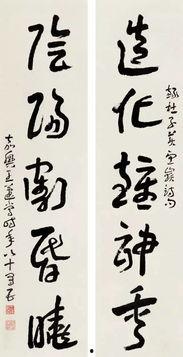 録杜子美望嶽詩句
造化鍾神秀
陰陽割昏曉
嘉興王蘧常時年八十